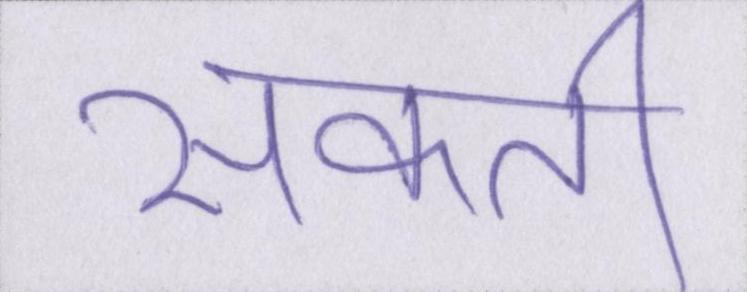 सकती